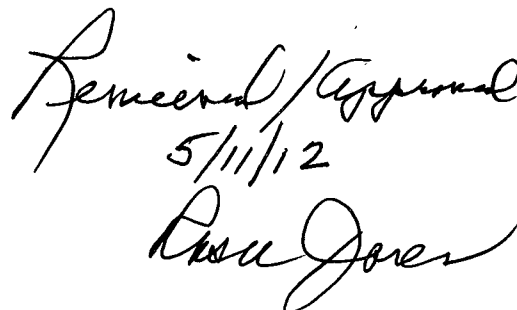 Reviewed/Approved
5/11/12
Rose Jones